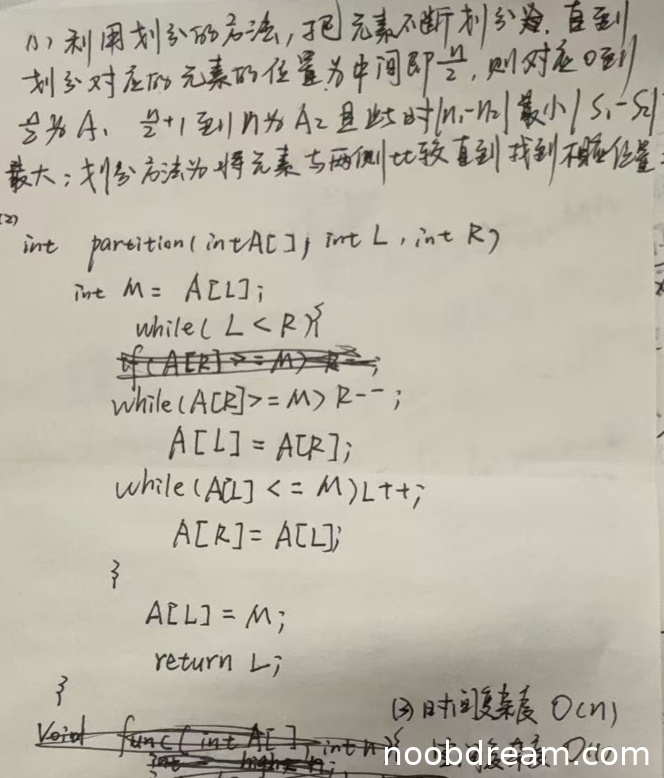 (1) 利用划分的方法,把元素不断划分,直到
划分对应的元素的位置为中间即n/2,则对应0到
n/2为A1 n/2+1到n为A2 且此时|n1-n2|最小|S1-S2|
最大;划分方法为将元素与两侧比较直到找到相应位置
(2)
int partition(int A[], int L, int R)
int M = A[L];
while(L < R){
if(A[R]>=M) R--;
while(A[R]>=M) R--;
A[L]=A[R];
while(A[L]<=M)L++;
A[R]=A[L];
}
A[L]=M;
return L;
}
(3) 时间复杂度 O(n)
Void func(int A[], int n){
复杂度 O(
int high=n;
noobdream.com